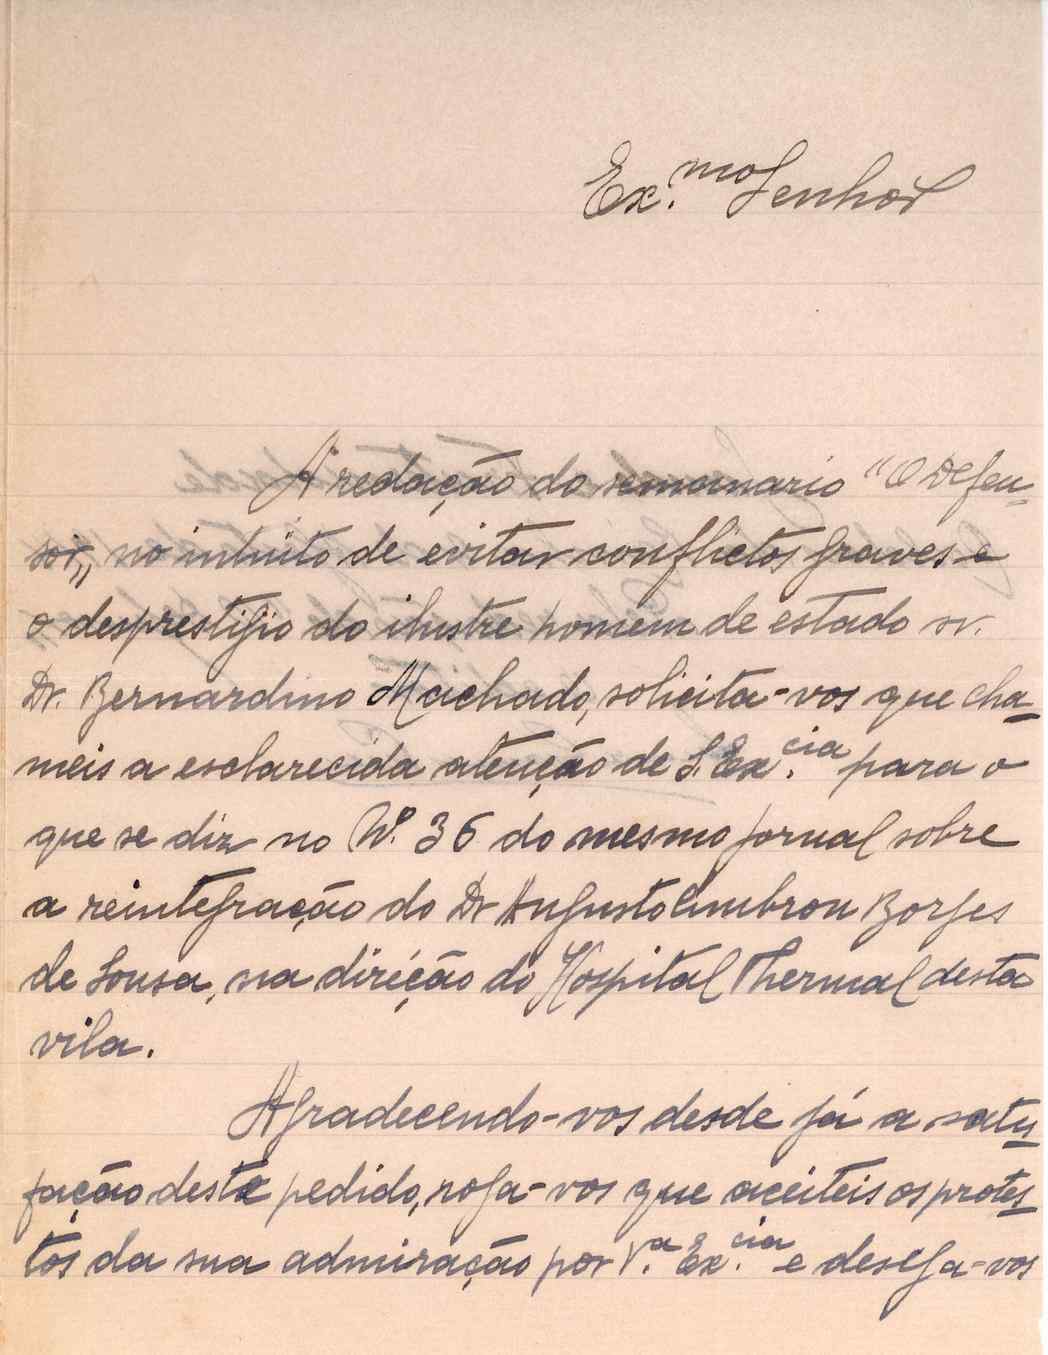 Ex.mo Senhor
A redação do semanario "O Defen-
sor„ no intuito de evitar conflictos graves e
o desprestigio do ilustre homem de estado sr.
Dr. Bernardino Machado, solicita-vos que cha-
meis a esclarecida atenção de S. Ex.cia para o
que se diz no Nº. 36 do mesmo jornal sobre
a reintegração do Dr Augusto Cymbron Borges
de Sousa, na direção do Hospital Thermal desta
vila.
Agradecendo-vos desde já a satis-
fação deste pedido, roga-vos que aceiteis os protes-
tos da sua admiração por V.a Ex.cia e deseja-vos